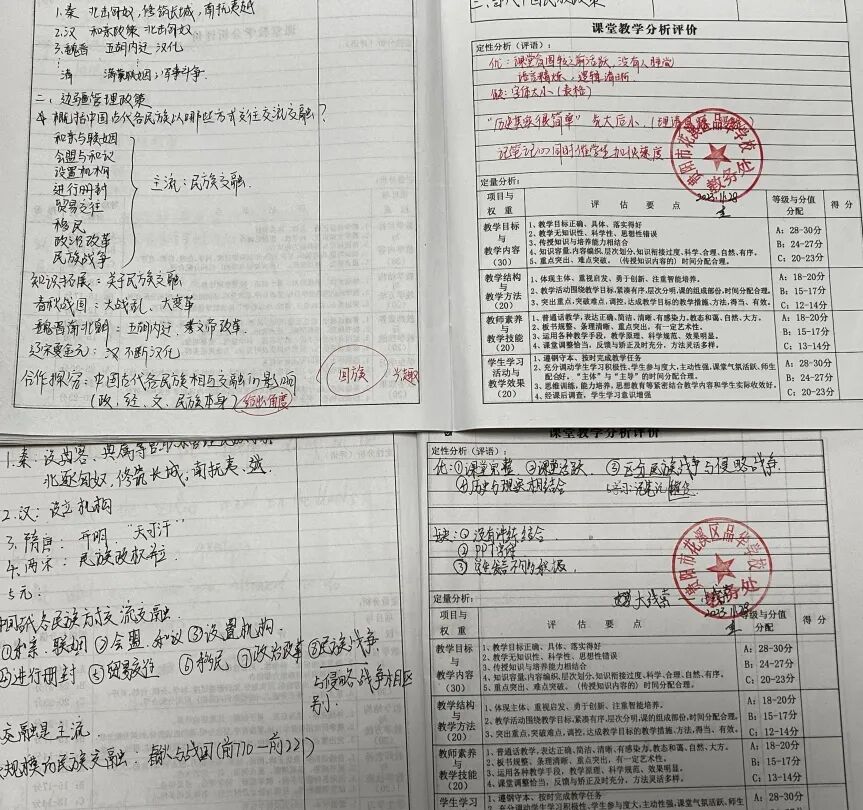 1.秦 北击匈奴,修筑长城,南抚夷越
2.汉 和亲政策 北击匈奴
3.魏晋 五胡内迁 汉化
清 满蒙联姻;军事斗争.
二、边疆管理政策
概括中国古代各民族以哪些方式交往交流交融?
和亲与联姻
会盟与和议
设置机构
进行册封
贸易交往
移民
政治改革
民族战争
主流:民族交融.
知识拓展:关于民族交融
春秋战国:大战乱、大变革
魏晋南北朝:五胡内迁、孝文帝改革.
辽宋夏金元:汉 不断汉化
合作探究:中国古代各民族相互交融的影响
(政、经、文、民族本身)给出角度
回族
兴趣
课堂教学分析评价
定性分析(评语):
优:课堂氛围较之前活跃,没有人睡觉
语言精炼,逻辑清晰
缺:字体大小(表格)
"历史其实很简单"
记笔记的同时催学生加快速度
贵阳市花溪区品华学校
教务处
2023.11.28
定量分析:
项目与权重 评估要点 等级与分值分配 得分
教学目标与教学内容(30)
1、教学目标正确、具体、落实得好
2、教学无知识性、科学性、思想性错误
3、传授知识与培养能力相结合
4、知识容量,内容编织,层次划分,知识衔接过度、科学、合理、自然、有序。
5、重点突出、难点突破。(传授知识内容的)时间分配合理。
A:28-30分
B:24-27分
C:20-23分
教学结构与教学方法(20)
1、体现主体、重视启发、勇于创新、注重智能培养。
2、教学活动围绕教学目标,紧凑有序,层次分明,课的组成部份,时间分配合理。
3、突出重点,突破难点,调控,达成教学目标的教学措施、方法,得当、有效。
A:18-20分
B:15-17分
C:12-14分
教师素养与教学技能(20)
1、普通话教学,表达正确、简洁、清晰,有感染力,教态和蔼、自然、大方。
2、板书规整、条理清晰、重点突出,有一定艺术性。
3、运用各种教学手段,教学原理、科学规范、效果明显。
4、课堂调整恰当,反馈与矫正及时充分,方法灵活多样。
A:18-20分
B:15-17分
C:13-14分
学生学习活动与教学效果(20)
1、遵纲守本、按时完成教学任务
2、充分调动学生学习积极性,学生参与度大,主动性强,课堂气氛活跃,师生配合好,"主体"与"主导"的时间分配合理。
3、思维训练,能力培养,思想教育等紧密结合教学内容和学生实际收效好。
4、经课后调查,学生学习意识增强
A:28-30分
B:24-27分
C:20-23分
北逐匈奴,修筑长城,南抚夷、越
2.汉:设立机构
3.隋唐:开明,"天可汗"
4.两宋:民族政权并立
5.元:
①和亲、联姻 ②会盟、和议 ③设置机构.
④进行册封 ⑤贸易交往 ⑥移民 ⑦政治改革 ⑧民族战争
与侵略战争相区别.
交融是主流.
课堂教学分析评价
定性分析(评语):
优:①课堂完整 ②课堂活跃 ③区分民族战争与侵略战争
④历史与现实相结合
缺:①没有讲练结合
贵阳市花溪区品华学校
教务处
2023.11.28
定量分析:
项目与权重 评估要点 等级与分值分配 得分
教学目标与教学内容(30)
1、教学目标正确、具体、落实得好
2、教学无知识性、科学性、思想性错误
3、传授知识与培养能力相结合
4、知识容量,内容编织,层次划分,知识衔接过度、科学、合理、自然、有序。
5、重点突出、难点突破。(传授知识内容的)时间分配合理。
A:28-30分
B:24-27分
C:20-23分
教学结构与教学方法(20)
1、体现主体、重视启发、勇于创新、注重智能培养。
2、教学活动围绕教学目标,紧凑有序,层次分明,课的组成部份,时间分配合理。
3、突出重点,突破难点,调控,达成教学目标的教学措施、方法,得当、有效。
A:18-20分
B:15-17分
C:12-14分
教师素养与教学技能(20)
1、普通话教学,表达正确、简洁、清晰,有感染力,教态和蔼、自然、大方。
2、板书规整、条理清晰、重点突出,有一定艺术性。
3、运用各种教学手段,教学原理、科学规范、效果明显。
4、课堂调整恰当,反馈与矫正及时充分,方法灵活多样。
A:18-20分
B:15-17分
C:13-14分
学生学习
1、遵纲守本、按时完成教学任务
A:28-30分